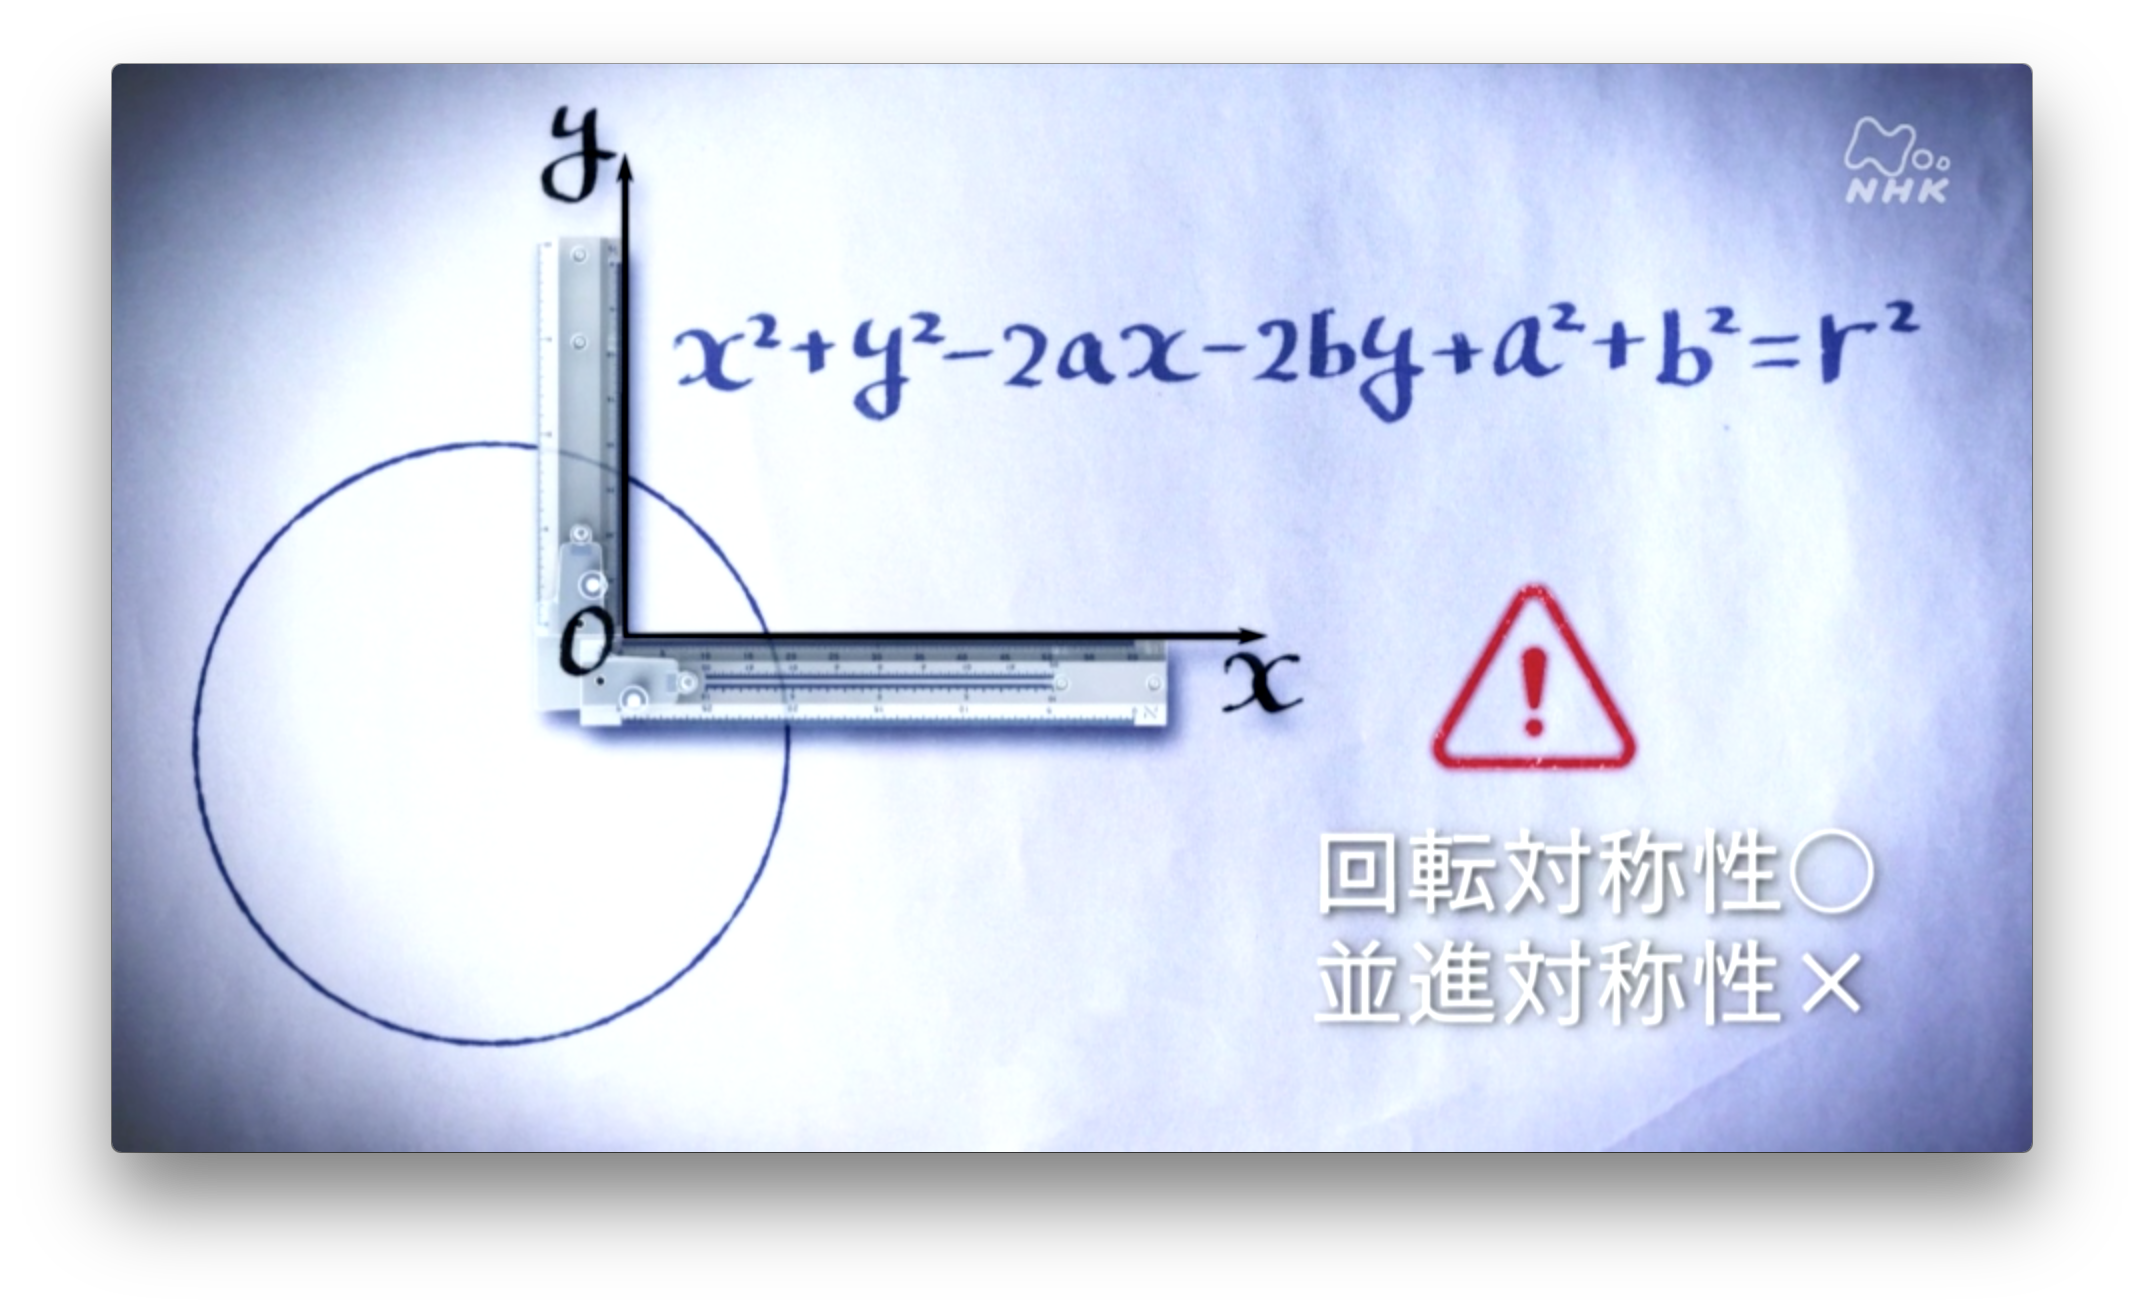 y
NHK
x²+y²-2ax-2by+a²+b²=r²
O
x
!
回転対称性○
並進対称性×